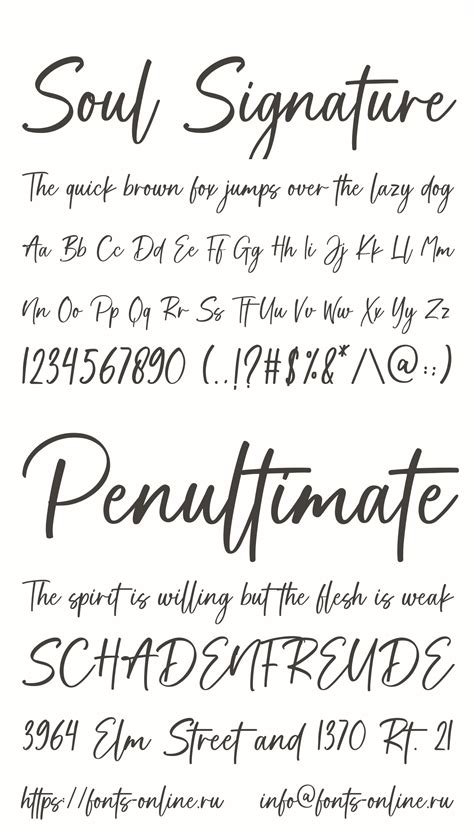 Soul Signature
The quick brown fox jumps over the lazy dog
Aa Bb Cc Dd Ee Ff Gg Hh Ii Jj Kk Ll Mm
Nn Oo Pp Qq Rr Ss Tt Uu Vv Ww Xx Yy Zz
1234567890 (.,!?#$%&*/\@:;)
Penultimate
The spirit is willing but the flesh is weak
SCHADENFREUDE
3964 Elm Street and 1370 Rt. 21
https://fonts-online.ru info@fonts-online.ru